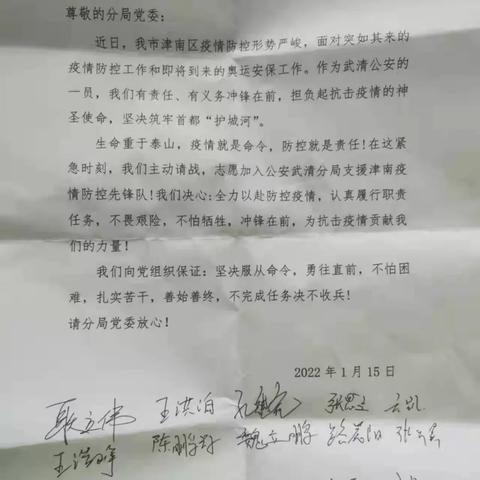 尊敬的分局党委：
近日，我市津南区疫情防控形势严峻，面对突如其来的
疫情防控工作和即将到来的奥运安保工作。作为武清公安的
一员，我们有责任、有义务冲锋在前，担负起抗击疫情的神
圣使命，坚决筑牢首都“护城河”。
生命重于泰山，疫情就是命令，防控就是责任！在这紧
急时刻，我们主动请战，志愿加入公安武清分局支援津南疫
情防控先锋队！我们决心：全力以赴防控疫情，认真履行职责
任务，不畏艰险，不怕牺牲，冲锋在前，为抗击疫情贡献我
们的力量！
我们向党组织保证：坚决服从命令，勇往直前，不怕困
难，扎实苦干，善始善终，不完成任务决不收兵！
请分局党委放心！
2022 年 1 月 15 日
王洪泊
魏立鹏